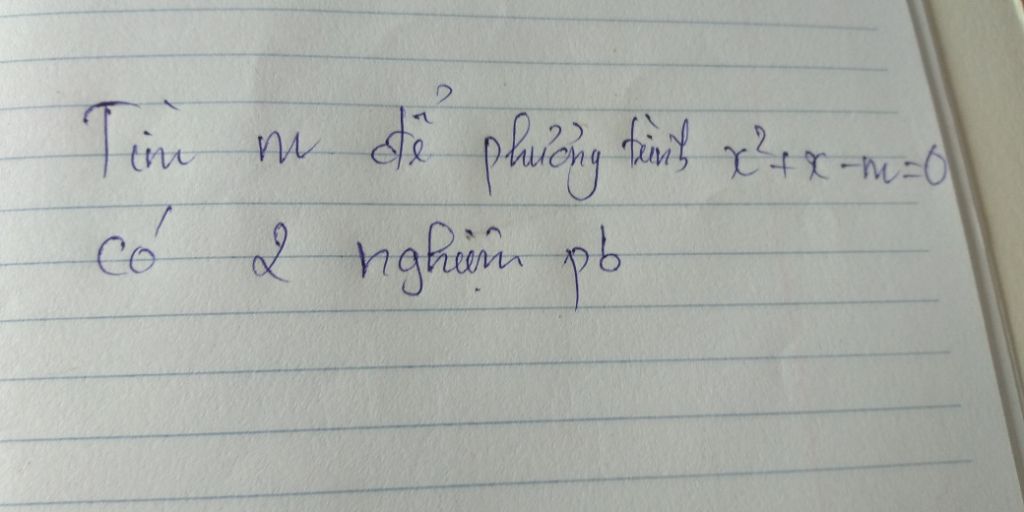 Tìm m để phương trình x²+x-m=0
có 2 nghiệm pb